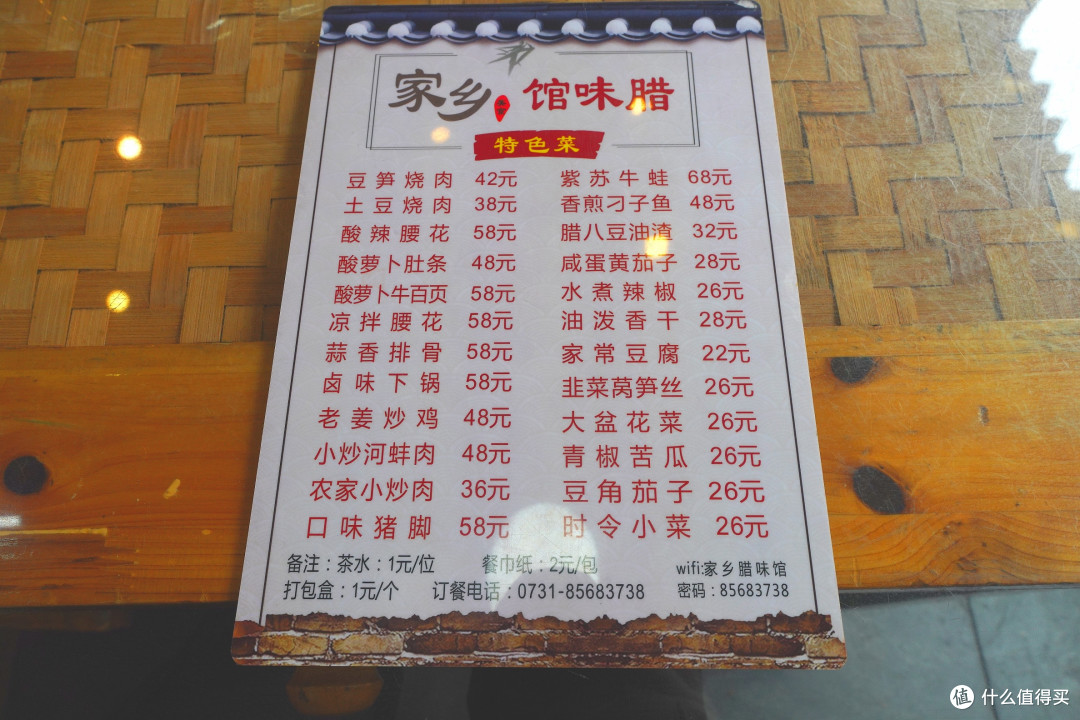 家乡 馆味腊
特色菜
豆笋烧肉 42元
土豆烧肉 38元
酸辣腰花 58元
酸萝卜肚条 48元
酸萝卜牛百页 58元
凉拌腰花 58元
蒜香排骨 58元
卤味下锅 58元
老姜炒鸡 48元
小炒河蚌肉 48元
农家小炒肉 36元
口味猪脚 58元
紫苏牛蛙 68元
香煎刁子鱼 48元
腊八豆油渣 32元
咸蛋黄茄子 28元
水煮辣椒 26元
油泼香干 28元
家常豆腐 22元
韭菜莴笋丝 26元
大盆花菜 26元
青椒苦瓜 26元
豆角茄子 26元
时令小菜 26元
备注：茶水：1元/位 餐巾纸：2元/包
打包盒：1元/个 订餐电话：0731-85683738
wifi:家乡腊味馆
密码：85683738
值 什么值得买